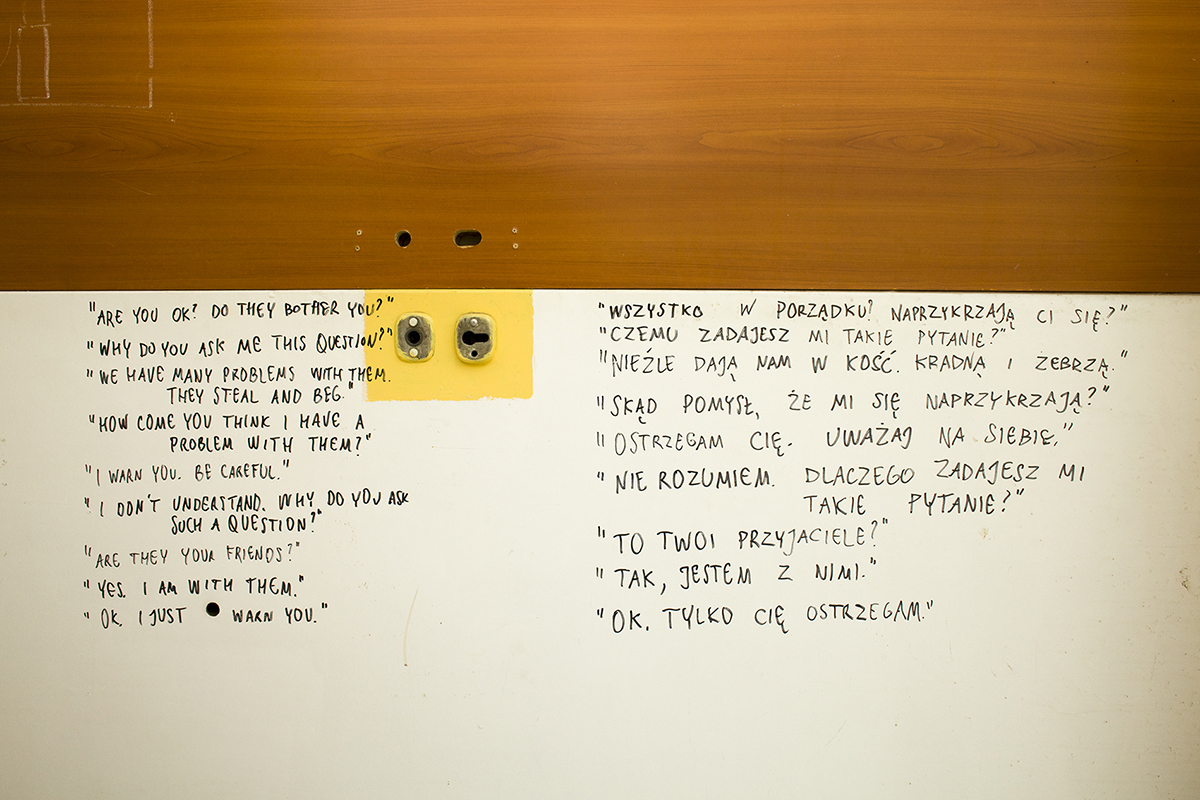 "ARE YOU OK? DO THEY BOTHER YOU?"
"WHY DO YOU ASK ME THIS QUESTION?"
"WE HAVE MANY PROBLEMS WITH THEM.
THEY STEAL AND BEG."
"HOW COME YOU THINK I HAVE A
PROBLEM WITH THEM?"
"I WARN YOU. BE CAREFUL."
"I DON'T UNDERSTAND. WHY DO YOU ASK
SUCH A QUESTION?"
"ARE THEY YOUR FRIENDS?"
"YES. I AM WITH THEM."
"OK. I JUST WARN YOU."
"WSZYSTKO W PORZĄDKU? NAPRZYKRZAJĄ CI SIĘ?"
"CZEMU ZADAJESZ MI TAKIE PYTANIE?"
"NIEŹLE DAJĄ NAM W KOŚĆ. KRADNĄ I ŻEBRZĄ."
"SKĄD POMYSŁ, ŻE MI SIĘ NAPRZYKRZAJĄ?"
"OSTRZEGAM CIĘ. UWAŻAJ NA SIEBIE."
"NIE ROZUMIEM. DLACZEGO ZADAJESZ MI
TAKIE PYTANIE?"
"TO TWOI PRZYJACIELE?"
"TAK, JESTEM Z NIMI."
"OK. TYLKO CIĘ OSTRZEGAM."